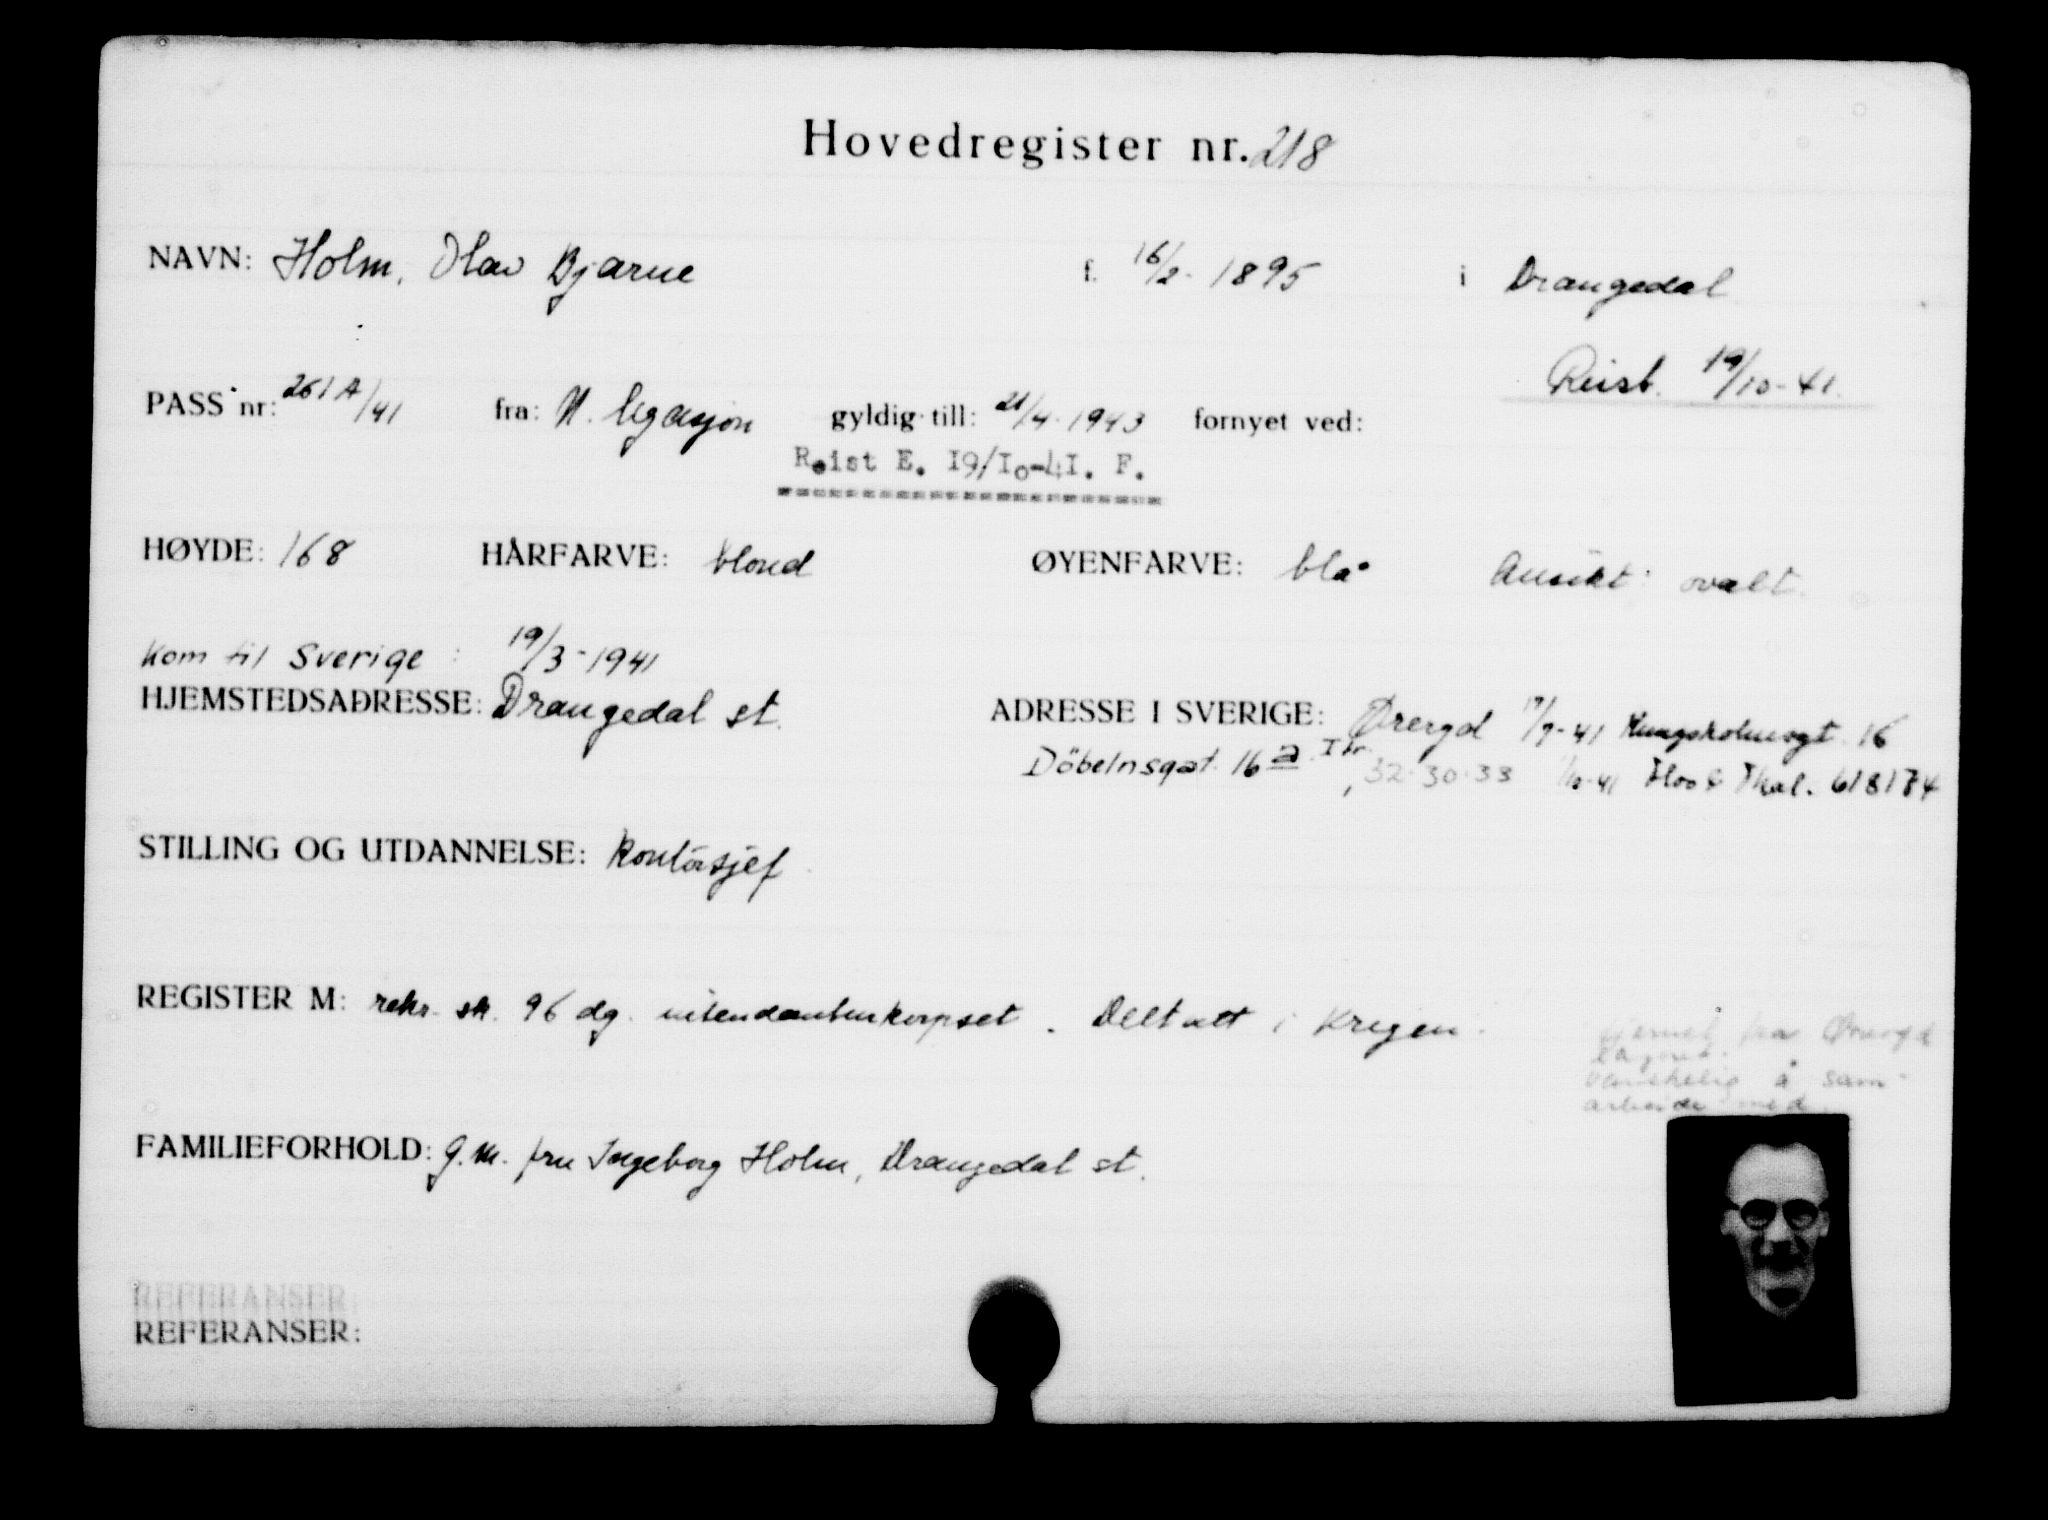 Hovedregister nr. 218
NAVN: Holm, Olav Bjarne f. 16/2-1895 i Drangedal
Reist. 19/10-41.
PASS nr: 261A/41 fra: N. legasjon gyldig till: 21/4-1943 fornyet ved:
Reist E. I9/Io-4I. F.
HØYDE: 168 HÅRFARVE: blond ØYENFARVE: blå Ansikt: ovalt.
Kom til Sverige: 19/3-1941
HJEMSTEDSADRESSE: Drangedal st. ADRESSE I SVERIGE: Øreryd 17/9-41 Kungsholmsgt. 16
Döbelnsgat. 16 a I tr, 32.30.33 /10-41 618174
STILLING OG UTDANNELSE: Kontorsjef.
REGISTER M: rekr. sk. 96 dg. intendanturkorpset. Deltatt i krigen.
fjernet fra Øreryd
vanskelig å sam-
arbeide med
FAMILIEFORHOLD: g.m. fru Ingeborg Holm, Drangedal st.
REFERANSER
REFERANSER: